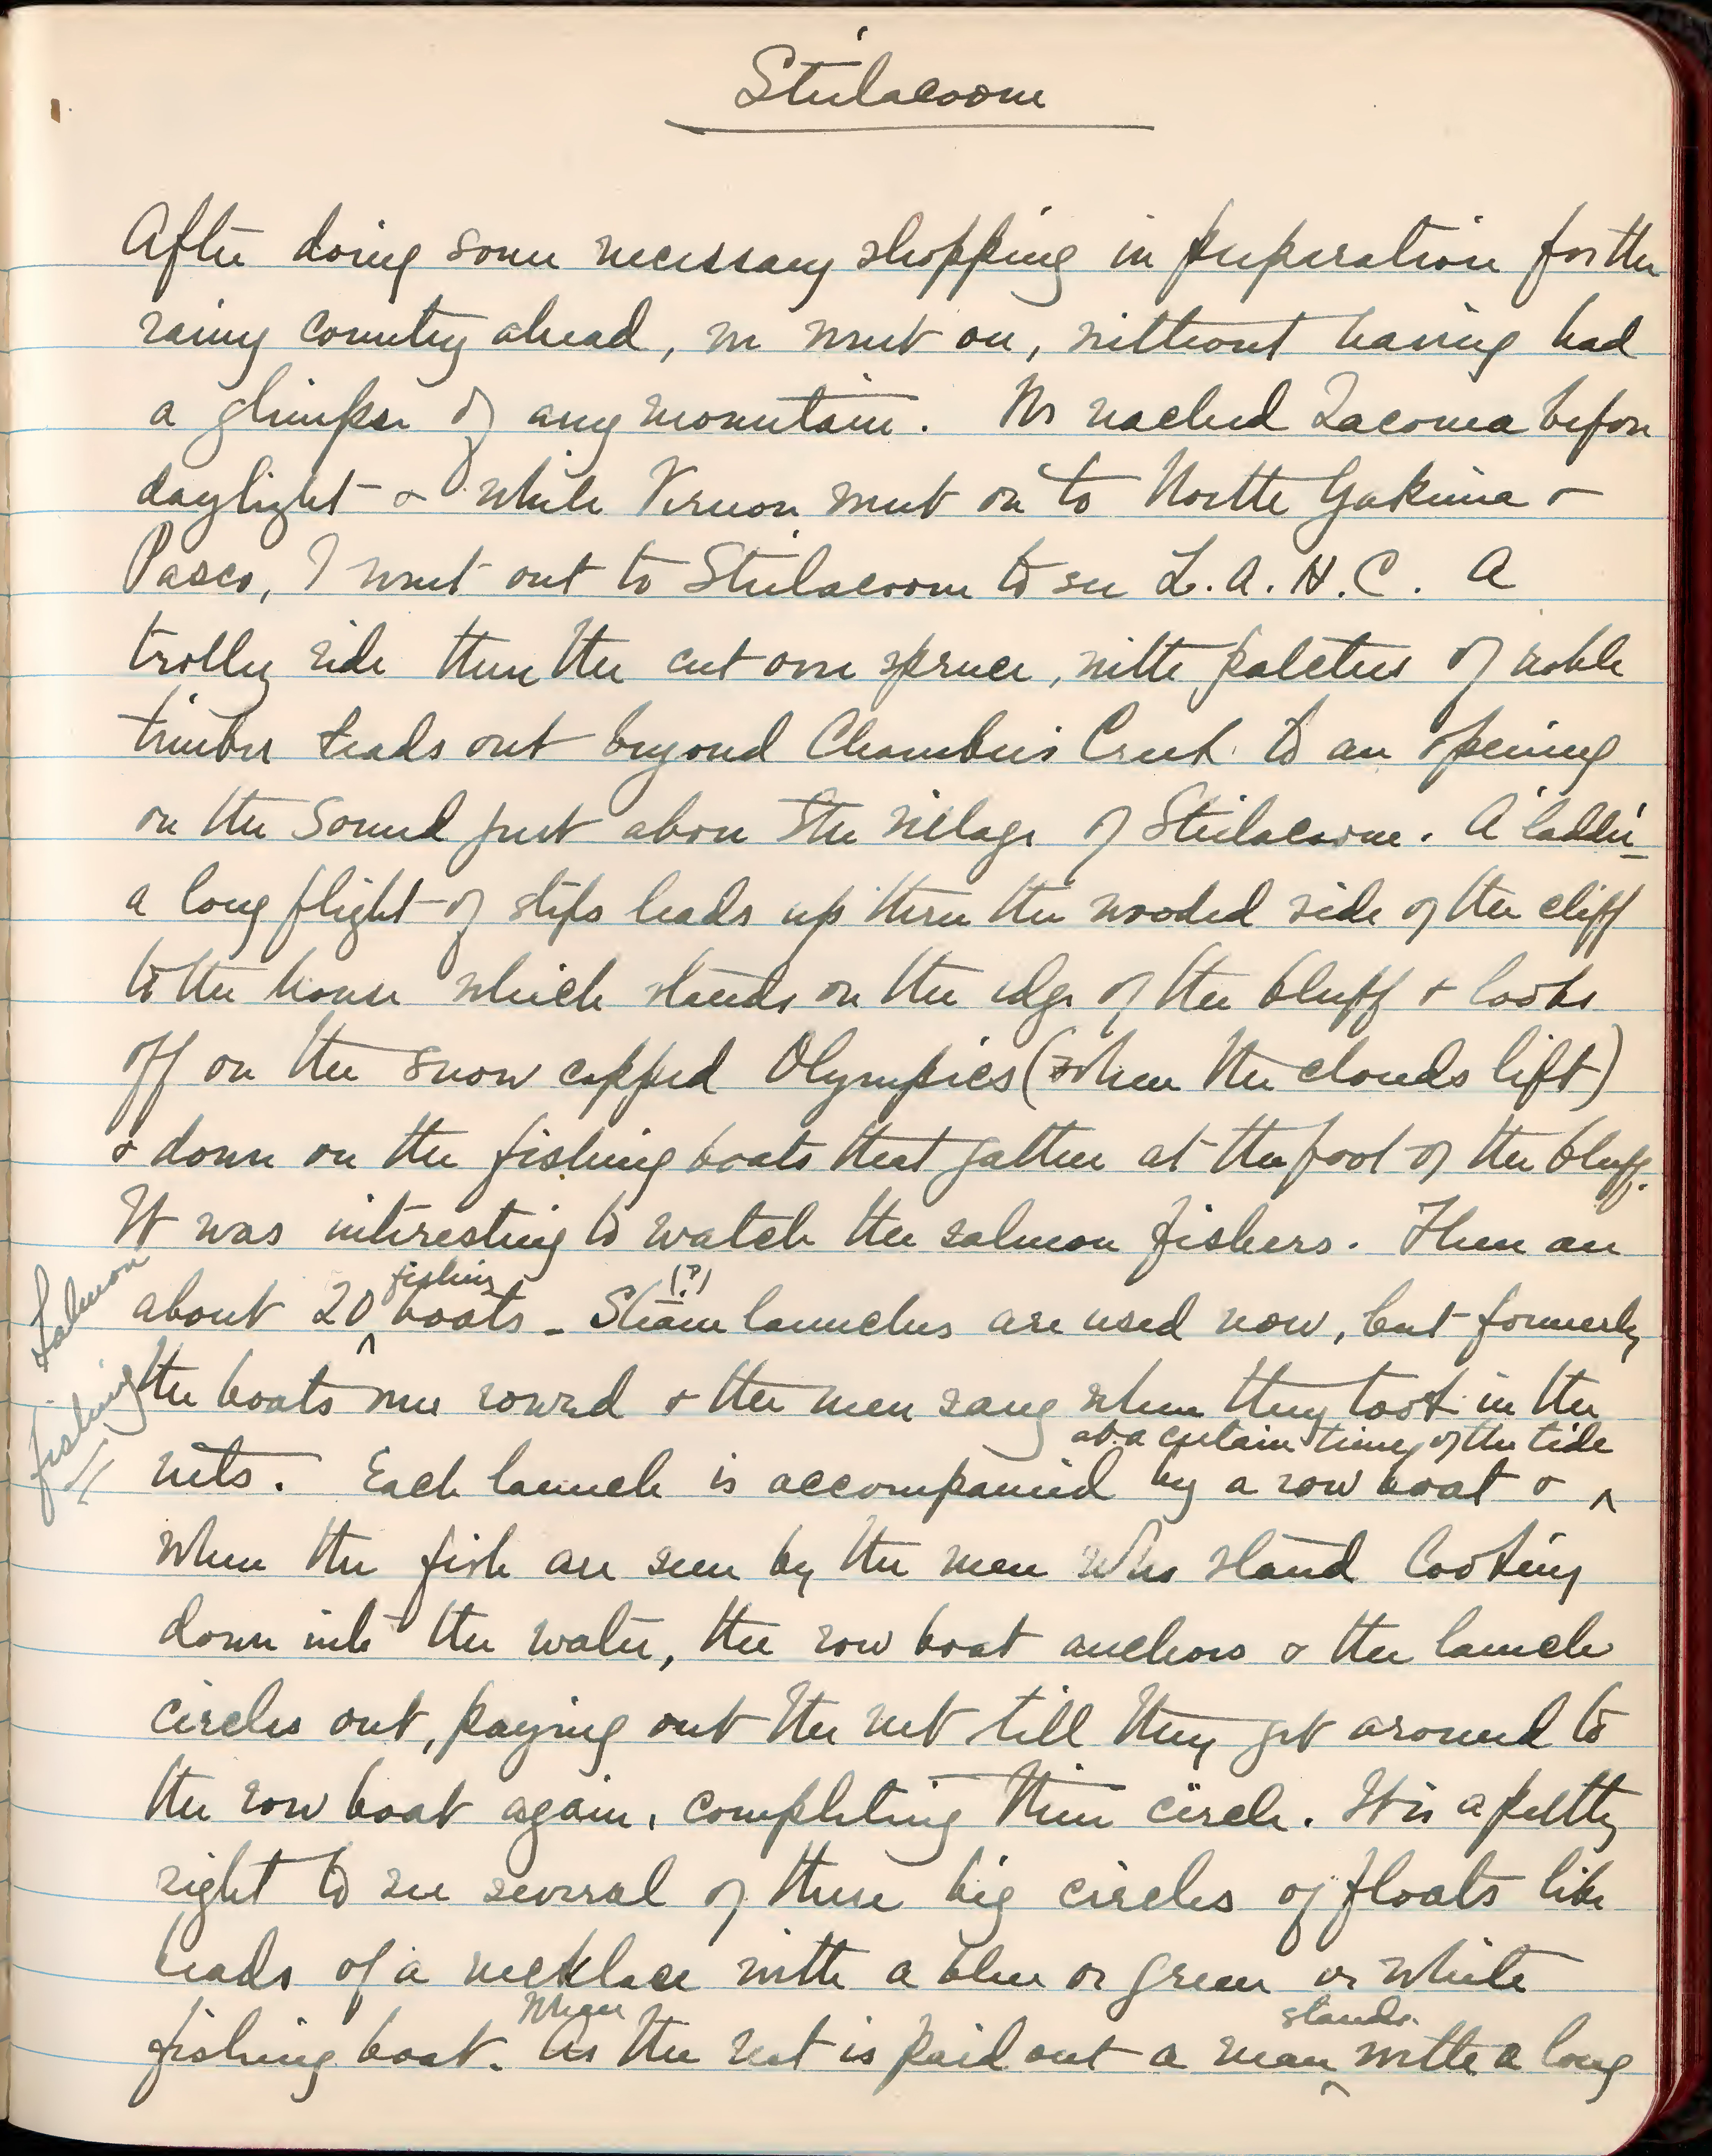 Steilacoom
After doing some necessary shopping in preparation for the
rainy country ahead, we went on, without having had
a glimpse of any mountain. We reached Tacoma before
daylight & while Vernon went on to North Yakima &
Pasco, I went out to Steilacoom to see L.A.H.C. A
trolley ride thru the cut over spruce, with patches of noble
timber leads out beyond Chamber's Creek to an opening
on the Sound just above the village of Steilacoom. A 'ladder'
a long flight of steps leads up thru the wooded side of the cliff
to the house which stands on the edge of the bluff & looks
off on the snow capped Olympics (when the clouds lift)
& down on the fishing boats that gather at the foot of the bluff.
It was interesting to watch the salmon fishers. There are
Salmon
fishing
about 20 ^ fishing boats - Steam (?) launches are used now, but formerly
the boats were rowed & the men sang when they took in the
at a certain time of the tide
nets. Each launch is accompanied by a row boat & ^
when the fish are seen by the men who stand looking
down into the water, the row boat anchors & the launch
circles out, paying out the net till they get around to
the row boat again, completing their circle. It is a pretty
sight to see several of these big circles of floats like
beads of a necklace with a blue or green or white
When stands
fishing boat. As the net is paid out a man ^ with a long